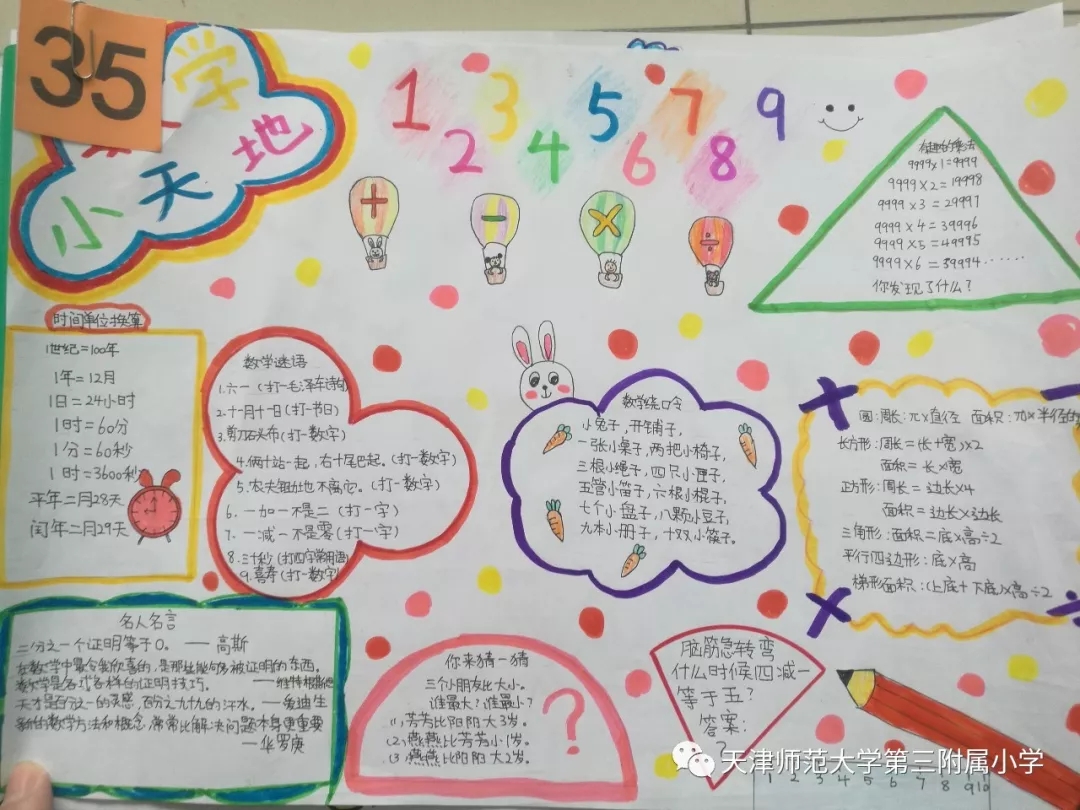 35
学
小天地
1 2 3 4 5 6 7 8 9
+ - × ÷
有趣的乘法
9999×1=9999
9999×2=19998
9999×3=29997
9999×4=39996
9999×5=49995
9999×6=59994······
你发现了什么?
时间单位换算
1世纪=100年
1年=12月
1日=24小时
1时=60分
1分=60秒
1时=3600秒
平年二月28天
闰年二月29天
数学谜语
1.六一(打一毛泽东诗句)
2.十月十日(打一节日)
3.剪刀石头布(打一数字)
4.俩十站一起,右十尾巴起。(打一数字)
5.农夫锄地不离它。(打一数字)
6.一加一不是二(打一字)
7.一减一不是零(打一字)
8.三千秒(打四字常用语)
9.喜寿(打一数字)
数学绕口令
小兔子,开铺子,
一张小桌子,两把小椅子,
三根小绳子,四只小匣子,
五管小笛子,六根小棍子,
七个小盘子,八颗小豆子,
九本小册子,十双小筷子。
圆:周长:π×直径 面积:π×半径的
长方形:周长=(长+宽)×2
面积=长×宽
正方形:周长=边长×4
面积=边长×边长
三角形:面积=底×高÷2
平行四边形:底×高
梯形面积:(上底+下底)×高÷2
名人名言
二分之一个证明等于0。——高斯
在数学中最令我欣喜的,是那些能够被证明的东西。
数学是各式各样的证明技巧。
天才是百分之一的灵感,百分之九十九的汗水。—爱迪生
新的数学方法和概念,常常比解决问题本身更重要
—华罗庚
你来猜一猜
三个小朋友比大小。
谁最大?谁最小?
(1)芳芳比阳阳大3岁。
(2)燕燕比芳芳小1岁。
(3)燕燕比阳阳大2岁。
?
脑筋急转弯
什么时候四减一
等于五?
答案:
?
天津师范大学第三附属小学
1 2 3 4 5 6 7 8 9 10